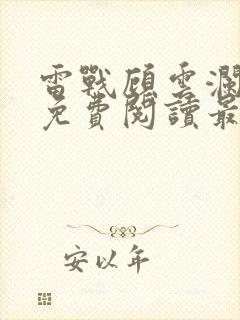 雷戰顧雲瀾
免費閱讀最
安以年